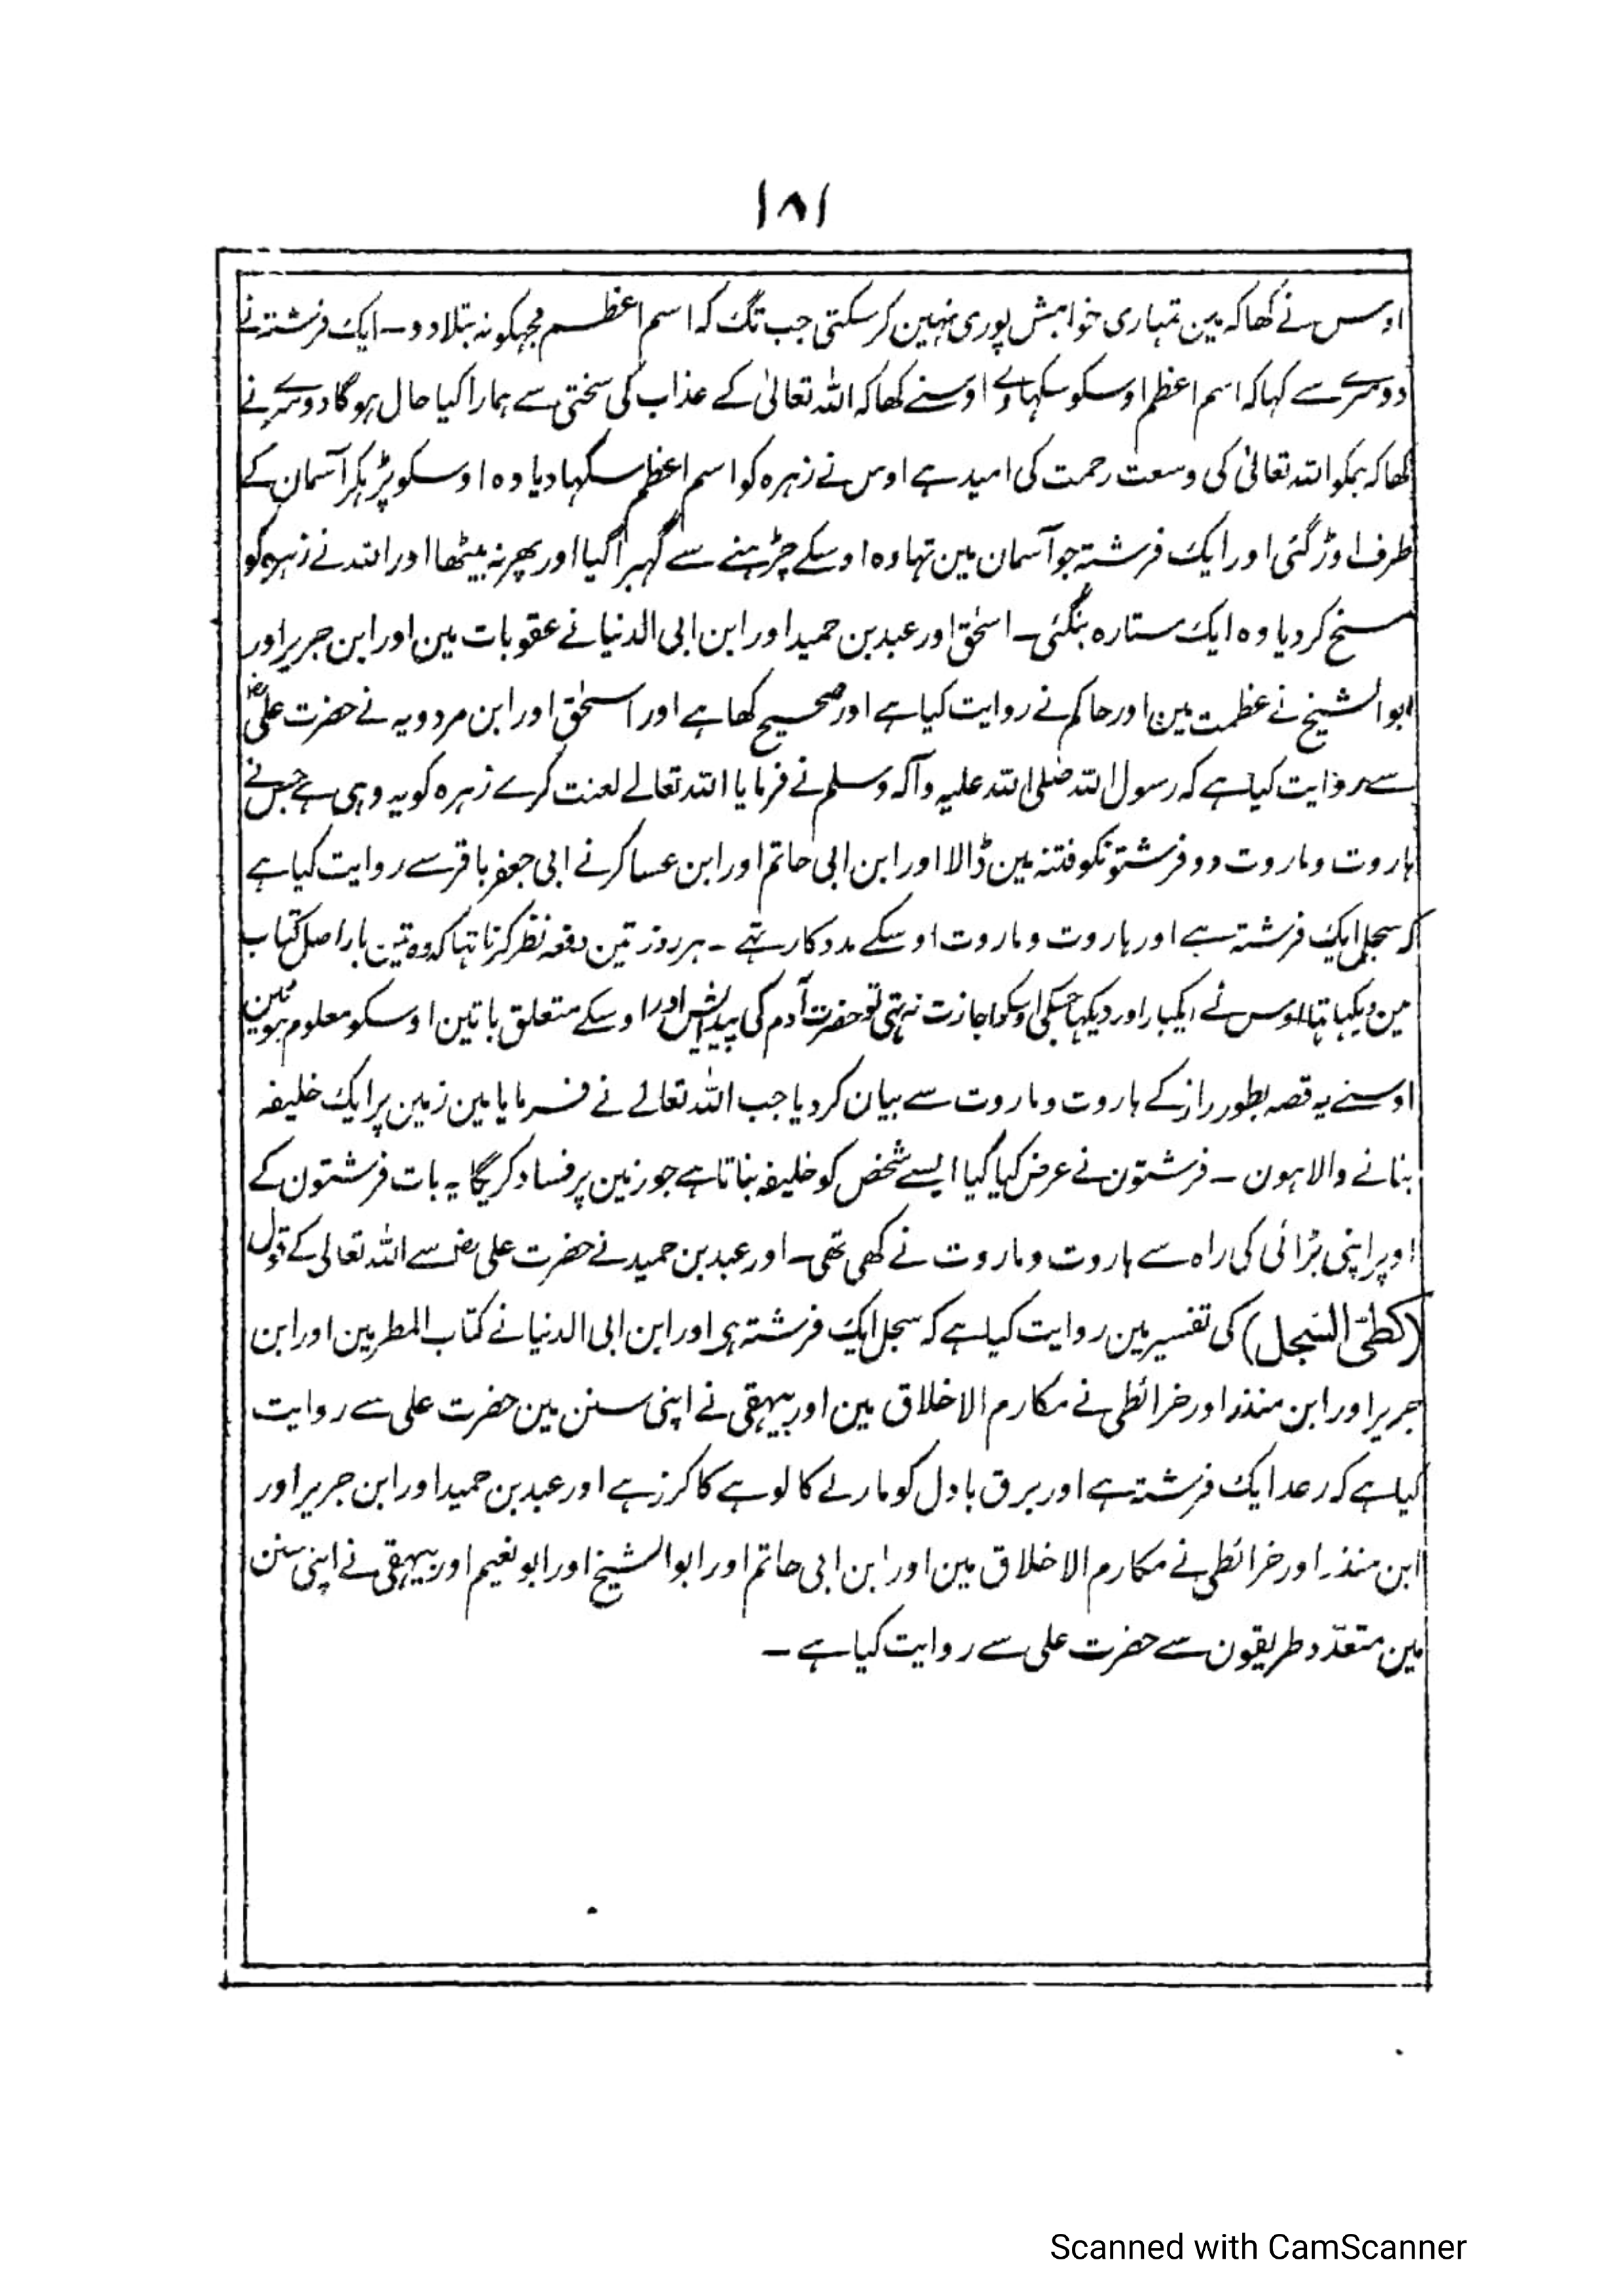 ۱۸۱
اوس نے کھاکہ مین تمہاری خواہش پوری نہین کرسکتی جب تک کہ اسم اعظم مجہکو نہ بتلا دو۔ ایک فرشتہ نے
دوسرے سے کہا کہ اسم اعظم اوسکو سکہادے اوسنے کھاکہ اللہ تعالیٰ کے عذاب کی سختی سے ہمارا کیا حال ہوگا دوسرے نے
کھاکہ ہمکو اللہ تعالیٰ کی وسعت رحمت کی امید ہے اوس نے زہرہ کو اسم اعظم سکہا دیا وہ اوسکو پڑہکر آسمان کے
طرف اوڑ گئی اور ایک فرشتہ جو آسمان مین تہا وہ اوسکے چڑہنے سے گہبرا گیا اور پھر نہ بیٹھا اور اللہ نے زہرہ کو
مسخ کردیا وہ ایک ستارہ بنگئی۔ اسحٰق اور عبد بن حمید اور ابن ابی الدنیا نے عقوبات مین اور ابن جریر اور
ابوالشیخ نے عظمت مین اور حاکم نے روایت کیا ہے اور صحیح کھا ہے اور اسحٰق اور ابن مردویہ نے حضرت علیؓ
سے روایت کیا ہے کہ رسول اللہ صلی اللہ علیہ وآلہ وسلم نے فرمایا اللہ تعالے لعنت کرے زہرہ کو یہ وہی ہے جس نے
ہاروت و ماروت دو فرشتونکو فتنہ مین ڈالا اور ابن ابی حاتم اور ابن عساکر نے ابی جعفر باقر سے روایت کیا ہے
کہ سجل ایک فرشتہ ہے اور ہاروت و ماروت اوسکے مددکار تہے ۔ ہر روز تین دفعہ نظر کرتا تہا کہ وہ تین بار اصل کتاب
مین دیکہا تہا اوس نے ایکبار اور دیکہا جسکی اوسکو اجازت نہ تہی تو حضرت آدم کی پیدایش اور اوسکے متعلق باتین اوسکو معلوم ہوئین
اوسنے یہ قصہ بطور راز کے ہاروت و ماروت سے بیان کردیا جب اللہ تعالے نے فرمایا مین زمین پر ایک خلیفہ
بنانے والا ہون ۔ فرشتون نے عرض کیا کیا ایسے شخص کو خلیفہ بناتا ہے جو زمین پر فساد کریگا یہ بات فرشتون کے
اوپر اپنی بڑائی کی راہ سے ہاروت و ماروت نے کھی تھی۔ اور عبد بن حمید نے حضرت علی رض سے اللہ تعالی کے قول
(کطیّ السّجل) کی تفسیر مین روایت کیا ہے کہ سجل ایک فرشتہ ہی اور ابن ابی الدنیا نے کتاب المطر مین اور ابن
جریر اور ابن منذر اور خرائطی نے مکارم الاخلاق مین اور بیہقی نے اپنی سنن مین حضرت علی سے روایت
کیا ہے کہ رعد ایک فرشتہ ہے اور برق بادل کو مارنے کا لوہے کا کرز ہے اور عبد بن حمید اور ابن جریر اور
ابن منذر اور خرائطی نے مکارم الاخلاق مین اور ابن ابی حاتم اور ابوالشیخ اور ابو نعیم اور بیہقی نے اپنی سنن
مین متعدّد طریقون سے حضرت علی سے روایت کیا ہے ۔
Scanned with CamScanner